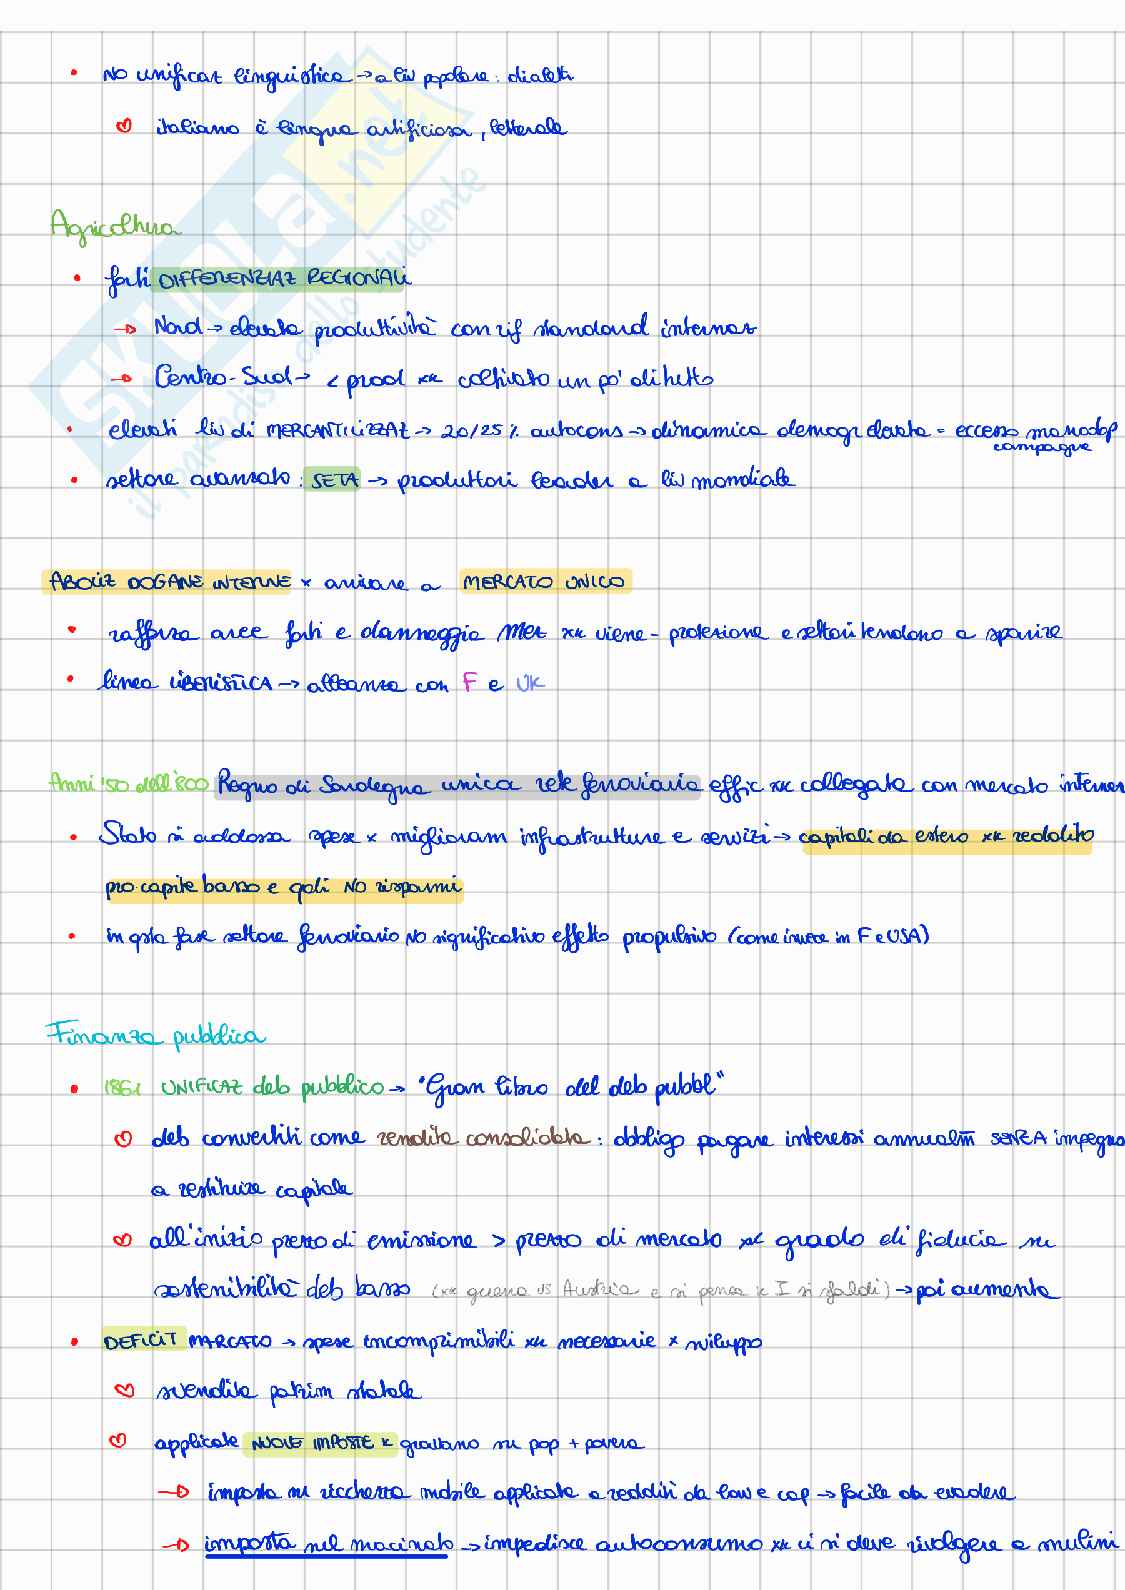 • NO unificaz linguistica → a liv popolare: dialetti
♡ italiano è lingua artificiosa, letterale
Agricoltura
• forti DIFFERENZIAZ REGIONALI
→ Nord → elevata produttività con rif standard internaz
→ Centro-Sud → < prod xk coltivato un po' di tutto
• elevati liv di MERCANTILIZZAZ → 20/25% autocons → dinamica demogr elevata = eccesso manodop
campagne
• settore avanzato: SETA → produttori leader a liv mondiale
ABOLIZ DOGANE INTERNE x arrivare a MERCATO UNICO
• rafforza aree forti e danneggia Mez xk viene - protezione e settori tendono a sparire
• linea LIBERISTICA → alleanza con F e UK
Anni '50 dell'800 Regno di Sardegna unica rete ferroviaria effic xk collegata con mercato internaz
• Stato si addossa spese x miglioram infrastrutture e servizi → capitali da estero xk reddito
pro-capite basso e qdi NO risparmi
• in qsta fase settore ferroviario NO significativo effetto propulsivo (come invece in F e USA)
Finanza pubblica
• 1861 UNIFICAZ deb pubblico → "Gran libro del deb pubbl"
♡ deb convertiti come rendita consolidata: obbligo pagare interessi annualm SENZA impegno
a restituire capitale
♡ all'inizio prezzo di emissione > prezzo di mercato xk grado di fiducia su
sostenibilità deb basso (xk guerra vs Austria e si pensa k I si sfaldi) → poi aumenta
• DEFICIT MARCATO → spese incomprimibili xk necessarie x sviluppo
♡ svendita patrim statale
♡ applicate NUOVE IMPOSTE k gravano su pop + povera
→ imposta su ricchezza mobile applicata a redditi da lav e cap → facile da evadere
→ imposta sul macinato → impedisce autoconsumo xk ci si deve rivolgere a mulini
SKUOLA.net
il paradiso dello studente